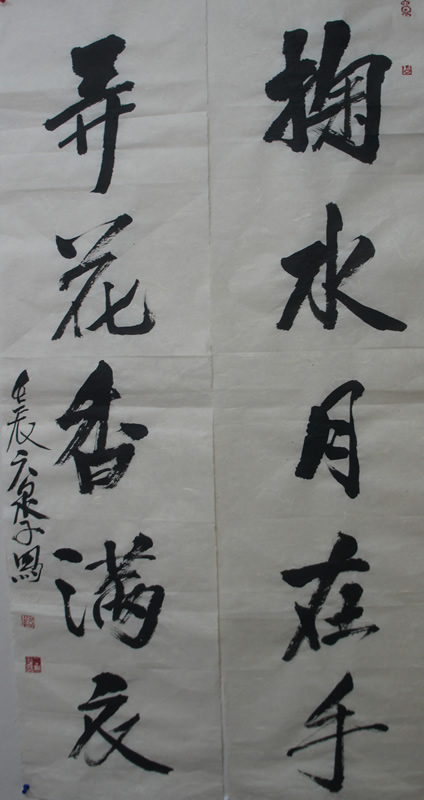 掬水月在手
弄花香满衣
壬辰六泉子写